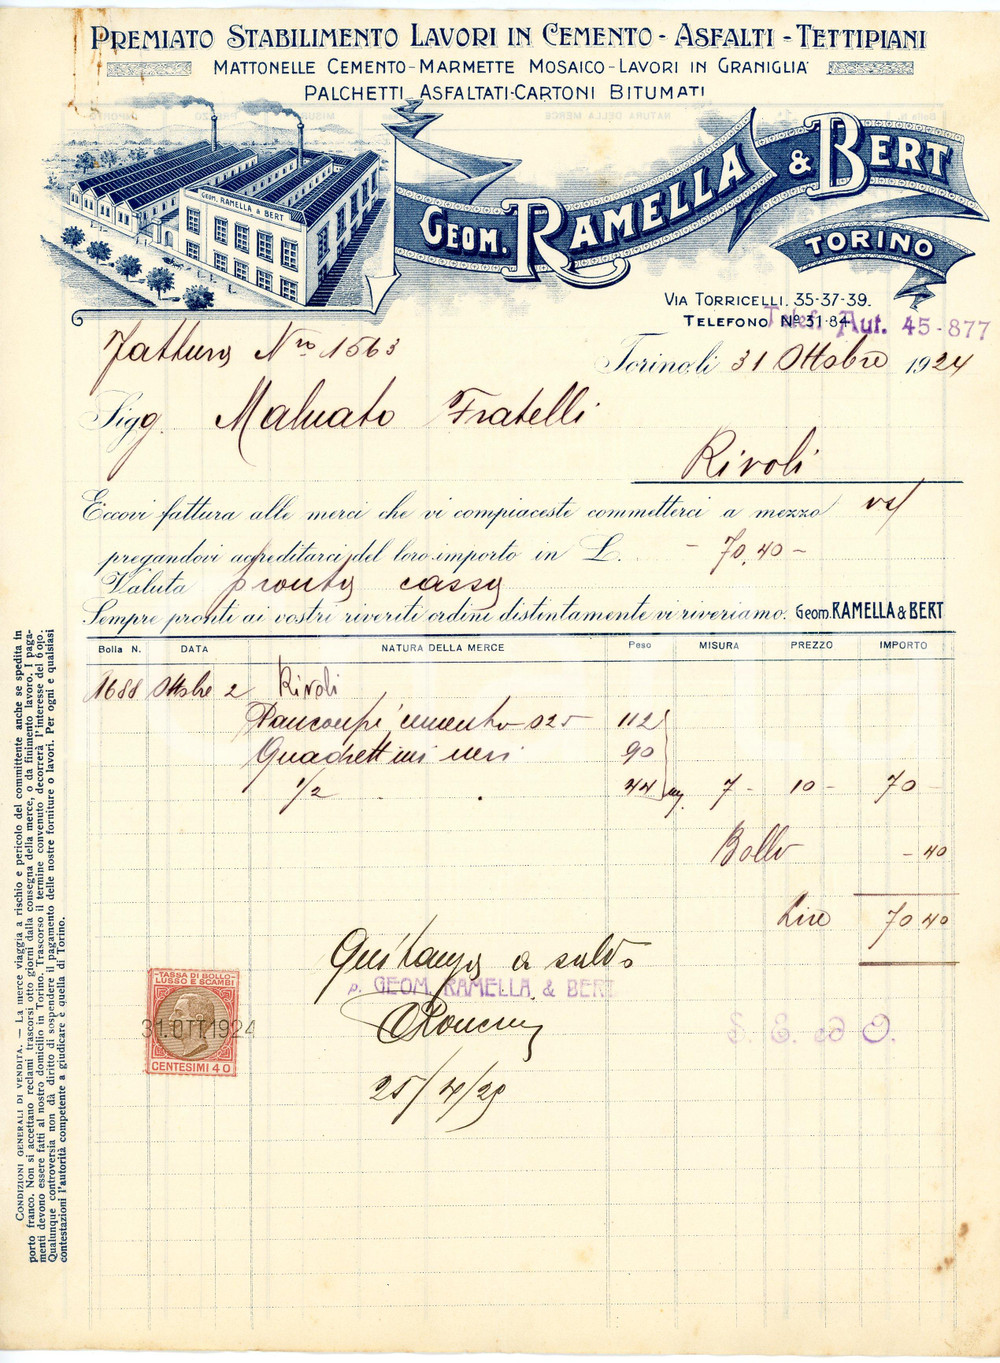 PREMIATO STABILIMENTO LAVORI IN CEMENTO - ASFALTI - TETTIPIANI
MATTONELLE CEMENTO - MARMETTE MOSAICO - LAVORI IN GRANIGLIA
PALCHETTI ASFALTATI - CARTONI BITUMATI
GEOM. RAMELLA & BERT
GEOM. RAMELLA & BERT
TORINO
VIA TORRICELLI. 35-37-39.
TELEFONO No 31-84
Telef. Aut. 45-877
Fattura Nro 1563
Torino, li 31 Ottobre 1924
Sigg. Maluato Fratelli
Rivoli
Eccovi fattura alle merci che vi compiaceste commetterci a mezzo vs/
pregandovi accreditarci del loro importo in L. - 70,40 -
Valuta pronta cassa
Sempre pronti ai vostri riveriti ordini distintamente vi riveriamo. Geom. RAMELLA & BERT
Bolla N. DATA NATURA DELLA MERCE Peso MISURA PREZZO IMPORTO
1688 Ottobre 2 Rivoli
cemento 025 112
Quadrettini neri 90
1/2 " . 44 mq. 7 - 10 - 70 -
Bollo - 40
Lire 70 40
Quitanza a saldo
p. GEOM. RAMELLA & BERT
25/4/25
S. E. ed O.
TASSA DI BOLLO
LUSSO E SCAMBI
31.OTT.1924
CENTESIMI 40
CONDIZIONI GENERALI DI VENDITA. — La merce viaggia a rischio e pericolo del committente anche se spedita in
porto franco. Non si accettano reclami trascorsi otto giorni dalla consegna della merce, o da finimento lavoro. I paga-
menti devono essere fatti al nostro domicilio in Torino. Trascorso il termine convenuto decorrerà l'interesse del 6 o|o.
Qualunque controversia non dà diritto di sospendere il pagamento delle nostre forniture o lavori. Per ogni e qualsiasi
contestazioni l'autorità competente a giudicare è quella di Torino.